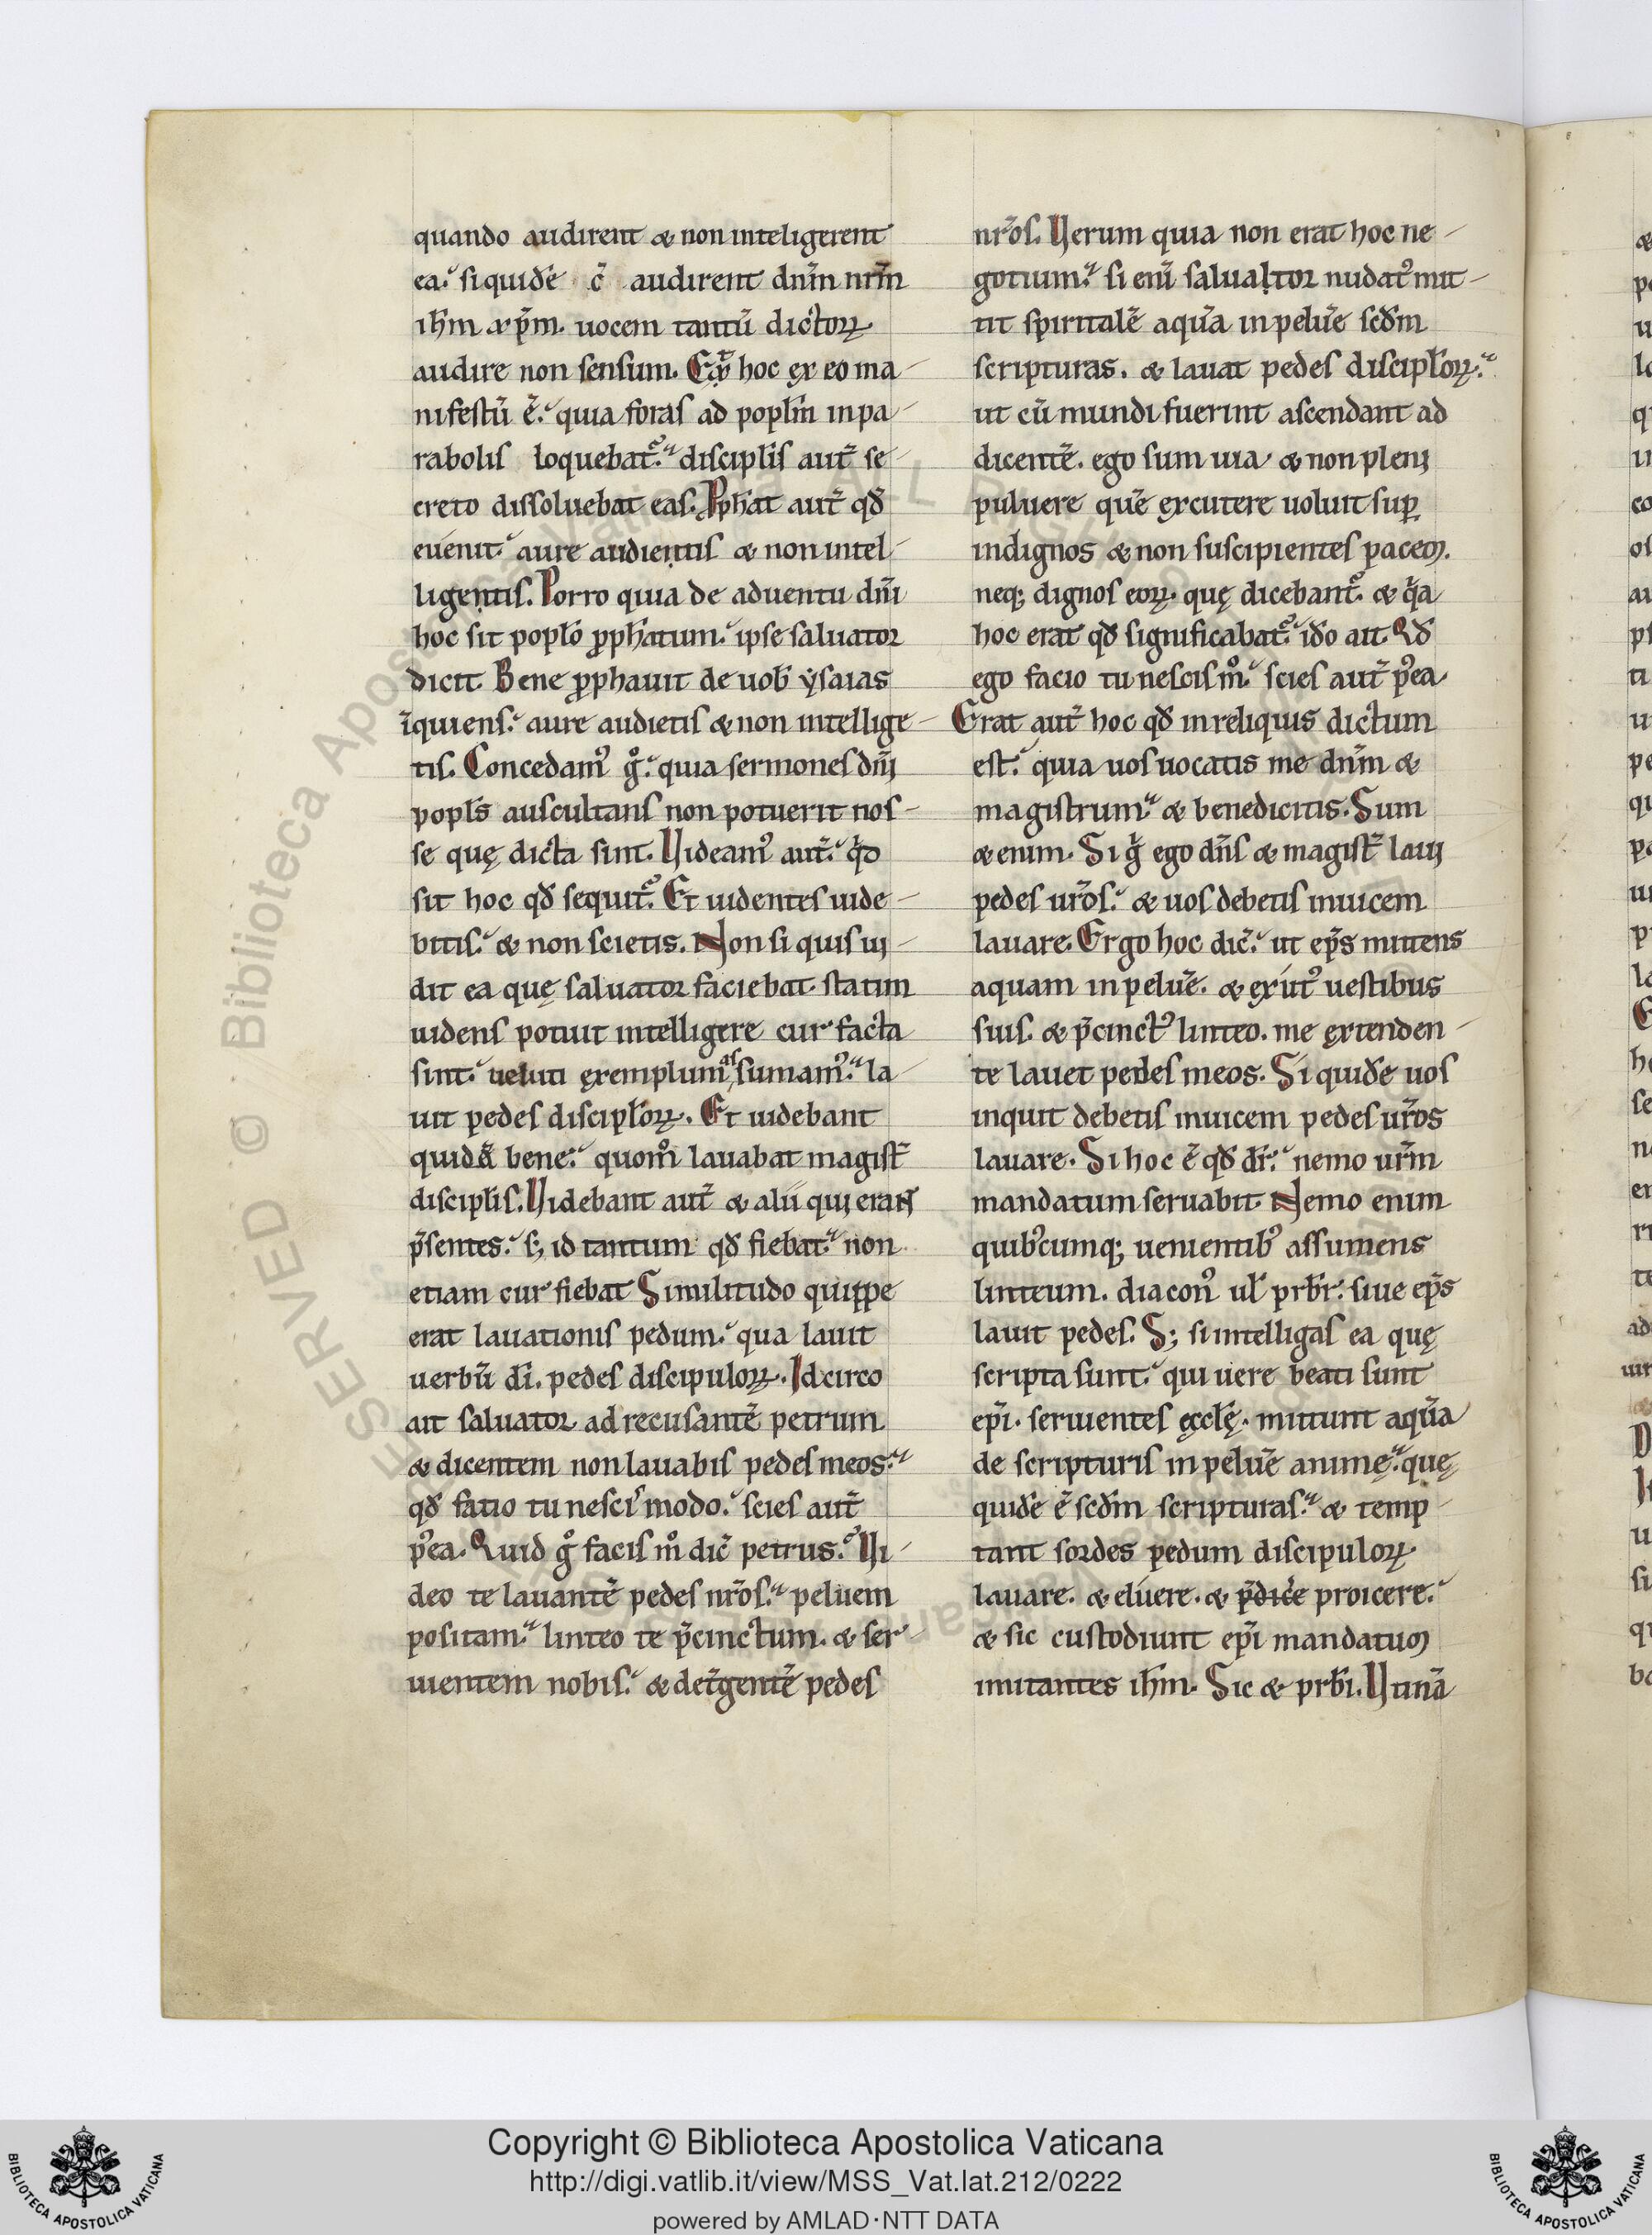 quando audirent & non inteligerent
ea. siquidē c̄ audirent dnm̄ nrm̄
ihm̄ xp̄m. uocem tantū dictoꝝ
audire non sensum. Et hoc ex eo ma-
nifestū ē. quia foras ad popłm in pa-
rabolis loquebat᷒. discipłis aut̄ se-
creto dissoluebat eas. Ꝓph̄at aut̄ qđ
euenit. aure audientis & non intel-
ligentis. Porro quia de aduentu dn̄i
hoc sit popło ꝓph̄atum. ipse saluator
dicit. Bene ꝓphauit de uob̄ ẏsaias
īquiens. aure audietis & non intellige-
tis. Concedam᷒ gͦ. quia sermones dn̄i
popłs auscultans non potuerit nos-
se quę dicta sint. Uideam᷒ aut̄. qͥd
sit hoc qđ sequit᷒. Et uidentes uide-
bitis. & non scietis. Non si quis ui-
dit ea quę saluator faciebat. statim
uidens potuit intelligere cur facta
sint. ueluti exemplum sumam᷒. la-
uit pedes discipłoꝝ. Et uidebant
quid& bene. quom̊ lauabat magist̄
discipłis. Uidebant aut̄ & alii qui erant
p̄sentes. s; id tantum qđ fiebat. non
etiam cur fiebat. Similitudo quippe
erat lauationis pedum. qua lauit
uerbū dī. pedes discipuloꝝ. Idcirco
ait saluator ad recusantē petrum
& dicentem non lauabis pedes meos.
qđ fatio tu nescis modo. scies aut̄
p᷒ea. Quid gͦ facis m̊ dic̄ petrus. Ui-
deo te lauantē pedes nr̄os. peluem
positam. linteo te p̄cinctum. & ser-
uientem nobis. & det̄gentē pedes
nr̄os. Uerum quia non erat hoc ne-
gotium. si enī saluator nudat᷒ mit-
tit spiritalē aquā in peluē scđm
scripturas. & lauat pedes discipłoꝝ.
ut cū mundi fuerint ascendant ad
dicentē. ego sum uia. & non pleni
puluere quē excutere uoluit suꝑ
indignos & non suscipientes pacem.
neq; dignos eoꝝ. quę dicebant᷒. & qͣa
hoc erat qđ significabat᷒. iđo ait. Qđ
ego facio tu nescis m̊. scies aut̄ p᷒ea
Erat aut̄ hoc qđ in reliquis dictum
est. quia uos uocatis me dnm̄ &
magistrum. & benedicitis. Sum
&enim. Si gͦ ego dn̄s & magist̄ laui
pedes ur̄os. & uos debetis inuicem
lauare. Ergo hoc dic̄. ut ep̄s mittens
aquam in peluē. & exut᷒ uestibus
suis. & p̄cinct᷒ linteo. me extenden-
te lauet pedes meos. Si quidē uos
inquit debetis inuicem pedes ur̄os
lauare. Si hoc ē qđ dr̄. nemo ur̄m
mandatum seruabit. Nemo enim
quib᷒cumq; uenientib᷒ assumens
linteum. diacon᷒ uł prƀr. siue ep̄s
lauit pedes. S; si intelligas ea quę
scripta sunt. qui uere beati sunt
ep̄i. seruientes ęccłę. mittunt aquā
de scripturis in peluē animę. quę
quidē ē scđm scripturas. & temp-
tant sordes pedum discipuloꝝ
lauare. & eluere. & p̄dice proicere.
& sic custodiunt ep̄i mandatum
imitantes ihm̄. Sic & prƀi. Utinā
Copyright © Biblioteca Apostolica Vaticana
http://digi.vatlib.it/view/MSS_Vat.lat.212/0222
powered by AMLAD·NTT DATA
BIBLIOTECA APOSTOLICA VATICANA
BIBLIOTECA APOSTOLICA VATICANA